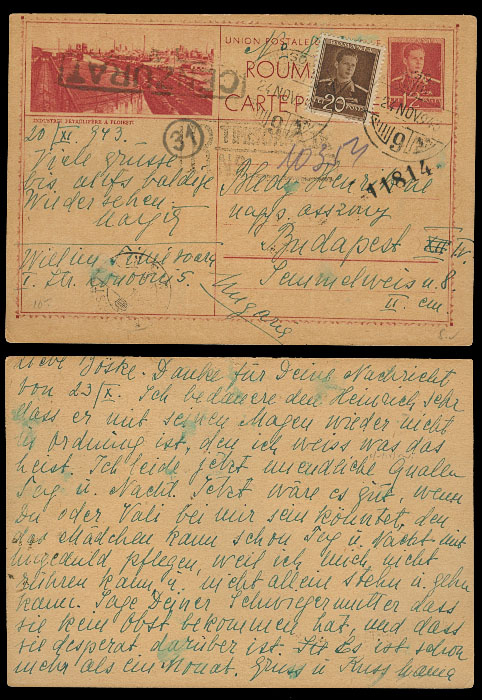 UNION POSTALE
ROUM
CARTE P
CENZURAT
INDUSTRIE PETROLIFERE A PLOIEȘTI
24 NOV
20
24 NOV
12
TIMIȘOARA
31
10351
11814
20/XI 943.
Viele Grüsse
bis aufs baldige
Wiedersehen.
Margit
Bledy Henrikne
nagys. asszony
Budapest XII IV.
Semmelweis u. 8.
II em
Ungarn
Wilhim Timisoara
I. Str. 5.
Liebe Böske. Danke für Deine Nachricht
von 23/X. Ich bedauere den Heinrich sehr
dass er mit seinen Magen wieder nicht
in Ordnung ist, den ich weiss was das
heist. Ich leide jetzt unendliche Qualen
Tag u. Nacht. Jetzt wäre es gut, wenn
Du oder Vali bei mir sein könntet, den
das Mädchen kann schon Tag u Nacht mit
ungeduld pflegen, weil ich mich nicht
rühren kann, u. nicht allein stehn u. gehn
kann. Sage Deiner Schwiegermutter dass
sie kein Obst bekommen hat, und dass
sie desperat darüber ist. Es ist schon
mehr als ein Monat. Gruss u Kuss Mama